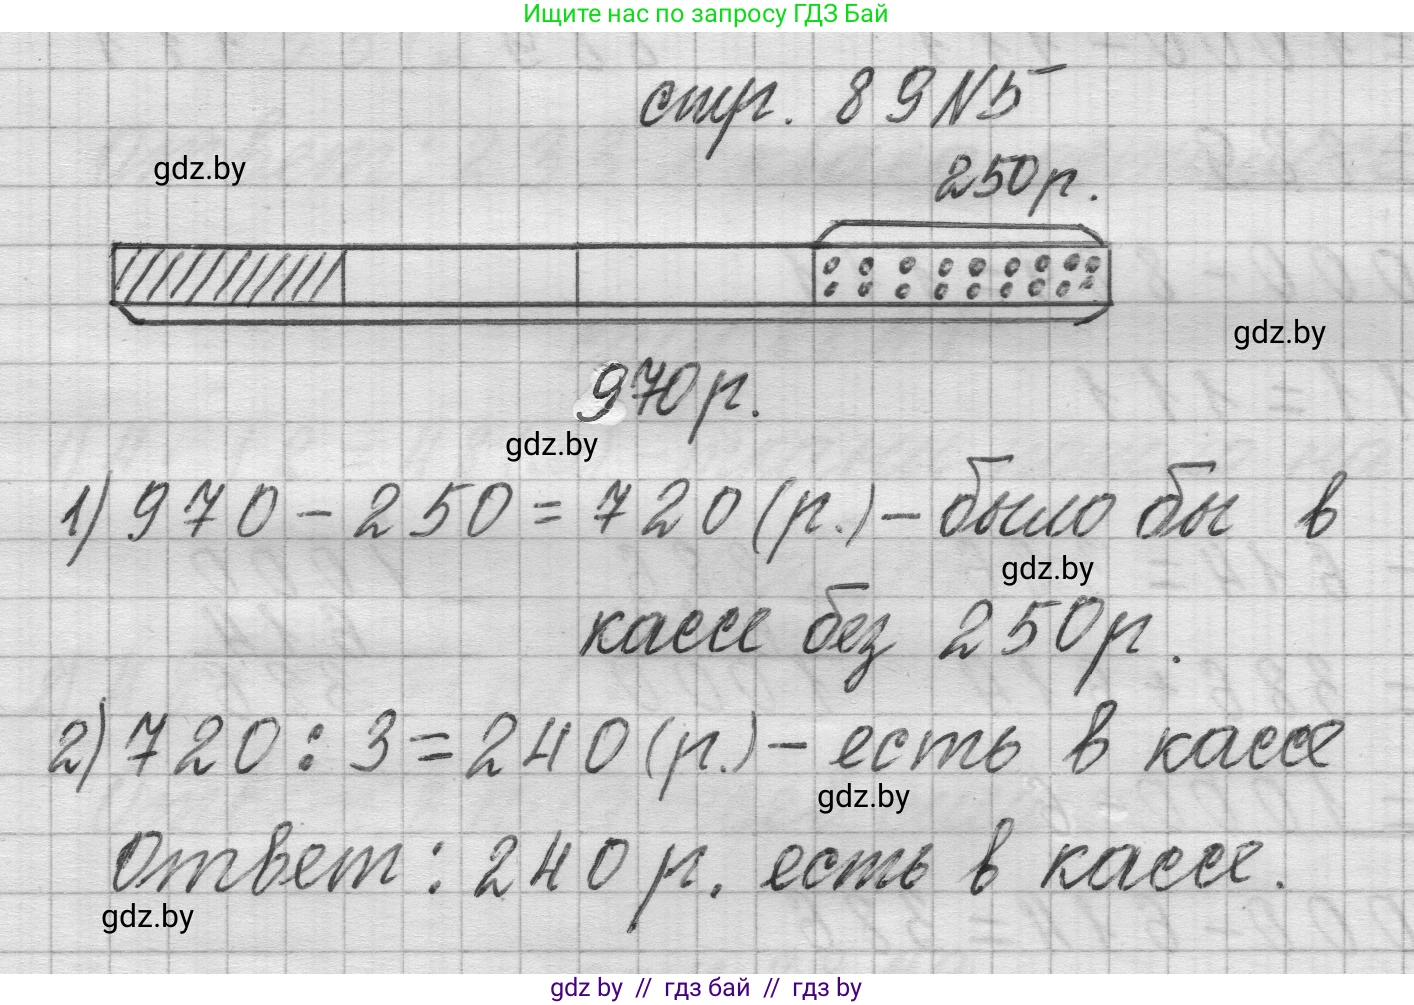 Ищите нас по запросу ГДЗ Бай
стр. 89 N5
gdz.by
250 р.
gdz.by
970 р.
gdz.by
1) 970 - 250 = 720 (р.) - было бы в
gdz.by
кассе без 250 р.
2) 720 : 3 = 240 (р.) - есть в кассе
gdz.by
Ответ: 240 р. есть в кассе.
gdz.by
gdz by // гдз бай // гдз by